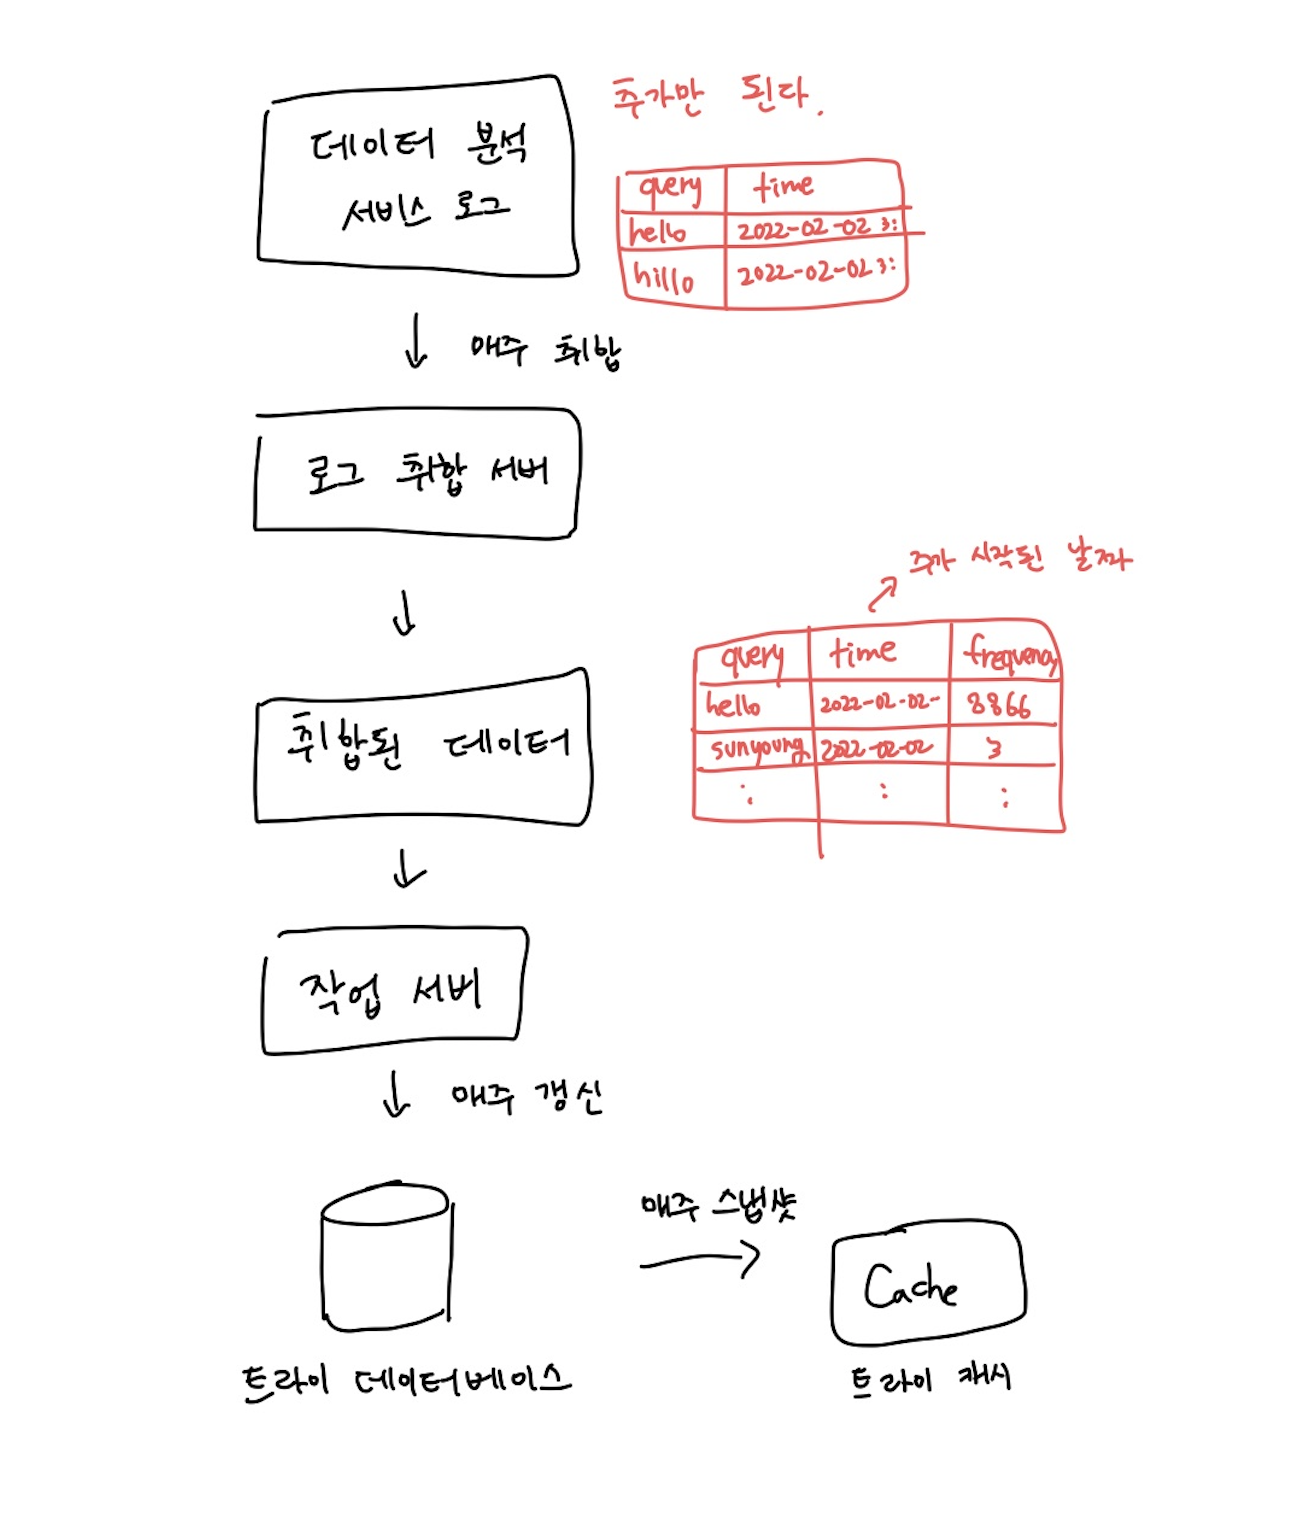 데이터 분석
서비스 로그
추가만 된다.
query time
hello 2022-02-02 3:
hillo 2022-02-02 3:
매주 취합
로그 취합 서버
주가 시작된 날짜
취합된 데이터
query time frequency
hello 2022-02-02- 8866
sunyoung 2022-02-02 3
: : :
작업 서버
매주 갱신
매주 스냅샷
Cache
트라이 데이터베이스
트라이 캐시